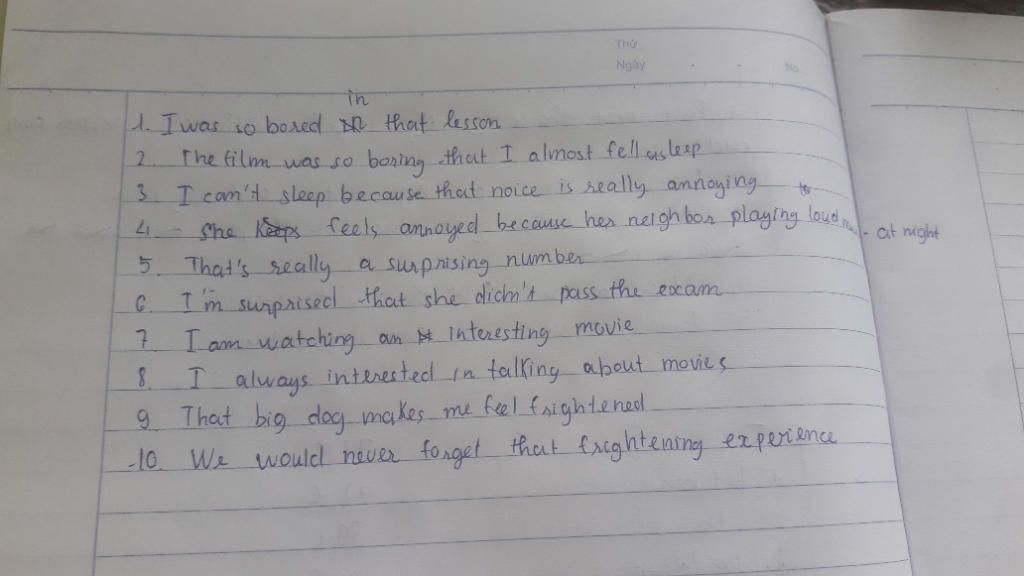 Thứ
Ngày
No.
in
1. I was so bored that lesson
2. The film was so boring that I almost fell asleep
3 I can't sleep because that noice is really annoying
4 - She feels annoyed because her neighbor playing loud - at night
5. That's really a surprising number
6. I'm surprised that she didn't pass the exam
7 I am watching an interesting movie
8. I always interested in talking about movies
9 That big dog makes me feel frightened
-10. We would never forget that frightening experience